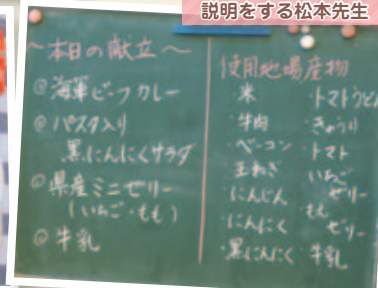 説明をする松本先生
～本日の献立～
◎海軍ビーフカレー
◎パスタ入り
黒にんにくサラダ
◎県産ミニゼリー
(いちご・もも)
◎牛乳
使用地場産物
・米
・牛肉
・ベーコン
・玉ねぎ
・にんじん
・にんにく
・黒にんにく
・トマトうどん
・きゅうり
・トマト
・いちごゼリー
・ももゼリー
・牛乳